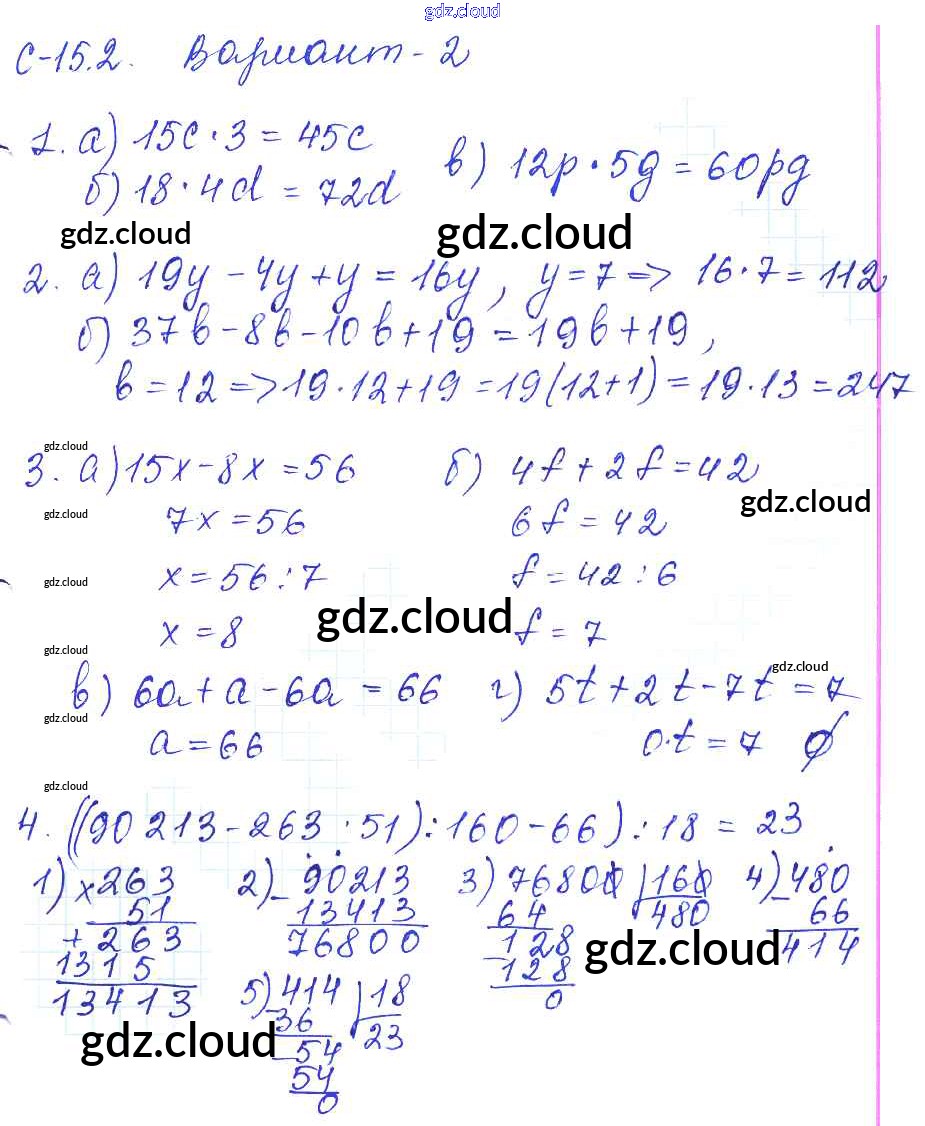 gdz.cloud
С-15.2. Вариант-2
1. а) 15c·3 = 45c
б) 18·4d = 72d
в) 12p·5g = 60pg
gdz.cloud
gdz.cloud
2. а) 19y - 4y + y = 16y, y = 7 => 16·7 = 112
б) 37b - 8b - 10b + 19 = 19b + 19,
b = 12 => 19·12 + 19 = 19(12+1) = 19·13 = 247
gdz.cloud
3. а) 15x - 8x = 56 б) 4f + 2f = 42
gdz.cloud
gdz.cloud
7x = 56 6f = 42
x = 56:7 f = 42:6
gdz.cloud
gdz.cloud
x = 8 f = 7
gdz.cloud
gdz.cloud
в) 6a + a - 6a = 66 г) 5t + 2t - 7t = 7
gdz.cloud
a = 66 0·t = 7 ∅
gdz.cloud
4. ((90 213 - 263·51):160 - 66):18 = 23
1) × 263
51
+ 263
1315
13413
2) - 90213
13413
76800
3) 76800 | 160
64 480
- 128
128
0
4) - 480
66
414
gdz.cloud
5) - 414 | 18
36 23
- 54
54
0
gdz.cloud